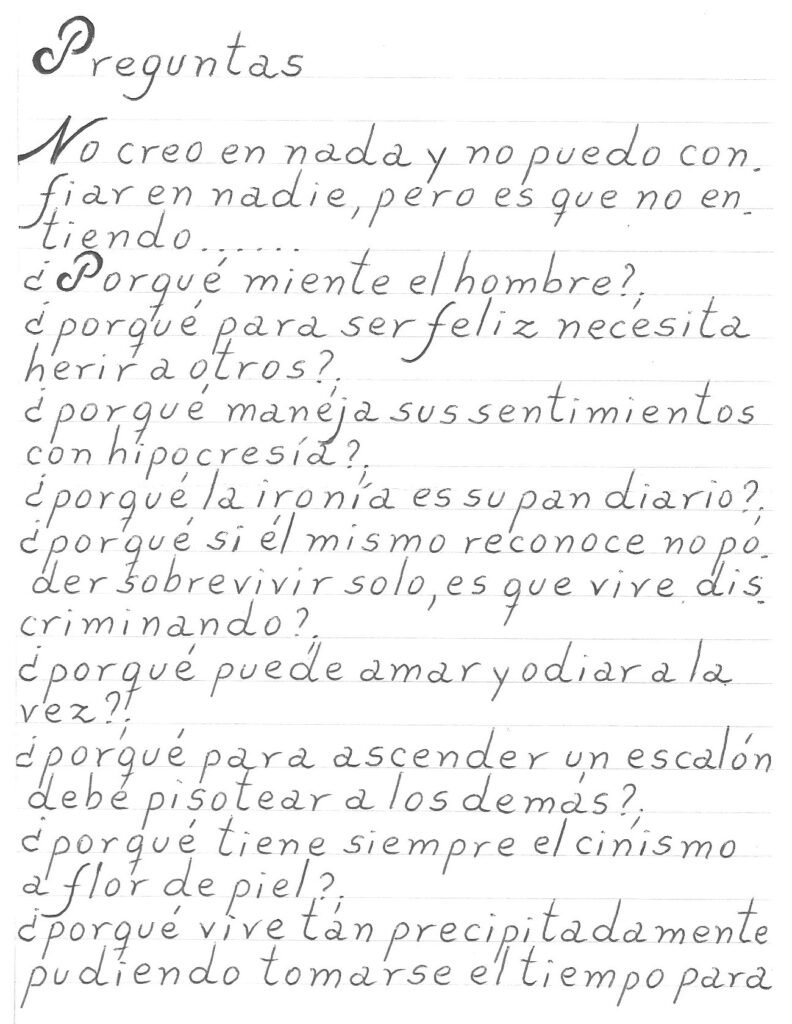 Preguntas
No creo en nada y no puedo con-
fiar en nadie, pero es que no en-
tiendo......
¿Porqué miente el hombre?,
¿porqué para ser feliz necesita
herir a otros?,
¿porqué maneja sus sentimientos
con hipocresía?,
¿porqué la ironía es su pan diario?,
¿porqué si él mismo reconoce no po-
der sobrevivir solo, es que vive dis-
criminando?,
¿porqué puede amar y odiar a la
vez?,
¿porqué para ascender un escalón
debe pisotear a los demás?,
¿porqué tiene siempre el cinismo
a flor de piel?,
¿porqué vive tán precipitadamente
pudiendo tomarse el tiempo para